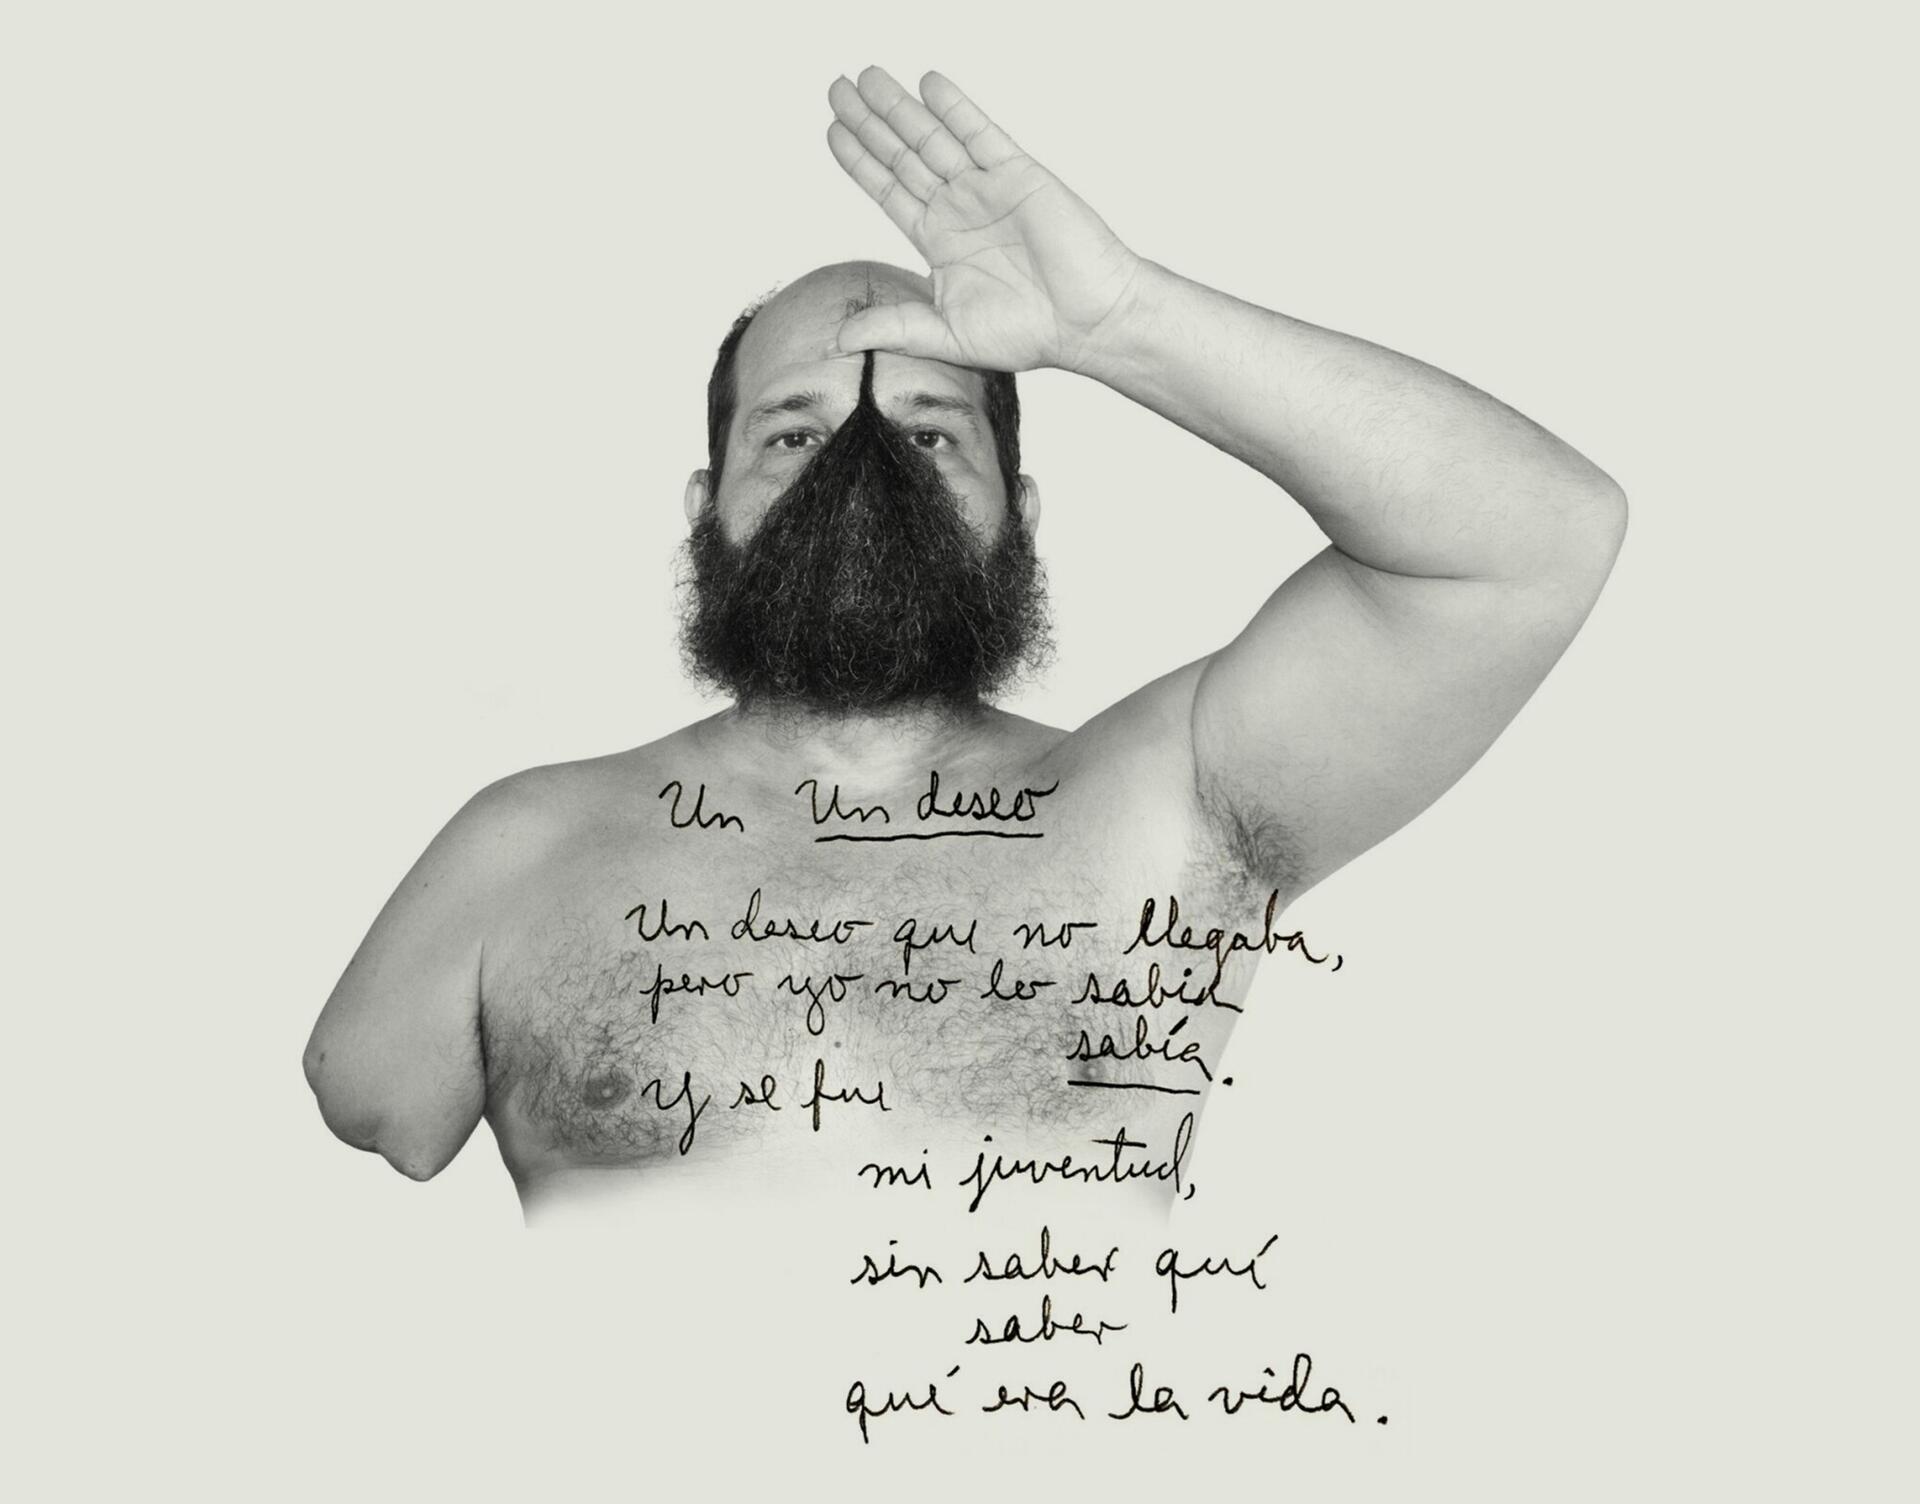 Un Un deseo
Un deseo que no llegaba,
pero yo no lo sabia
sabía.
Y se fue
mi juventud,
sin saber qué
saber
qué era la vida.